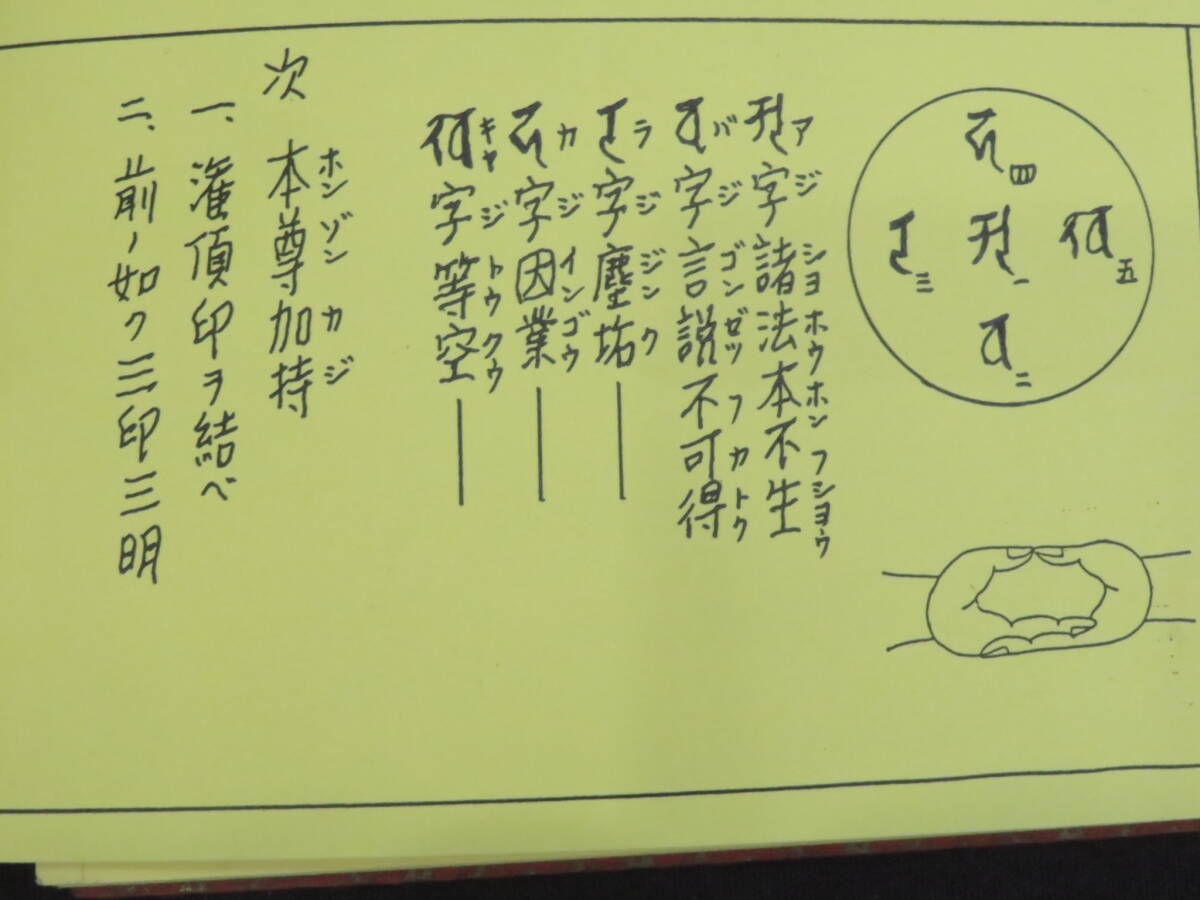 𑖮四
𑖏五
𑖀一
𑖨三
𑖪二
アジショホウホンフショウ
𑖀字諸法本不生
バジゴンゼツフカトク
𑖪字言説不可得
ラジジンク
𑖨字塵垢―
カジインゴウ
𑖮字因業―
キャジトウクウ
𑖏字等空―
ホンゾンカジ
次 本尊加持
一、灌頂印ヲ結べ
二、前ノ如ク三印三明